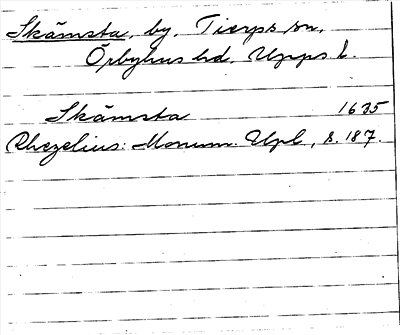 Skämsta, by, Tierps sn,
Örbyhus hd, Upps l.
Skämsta 1635
Rhezelius: Monum. Upl., s. 187.